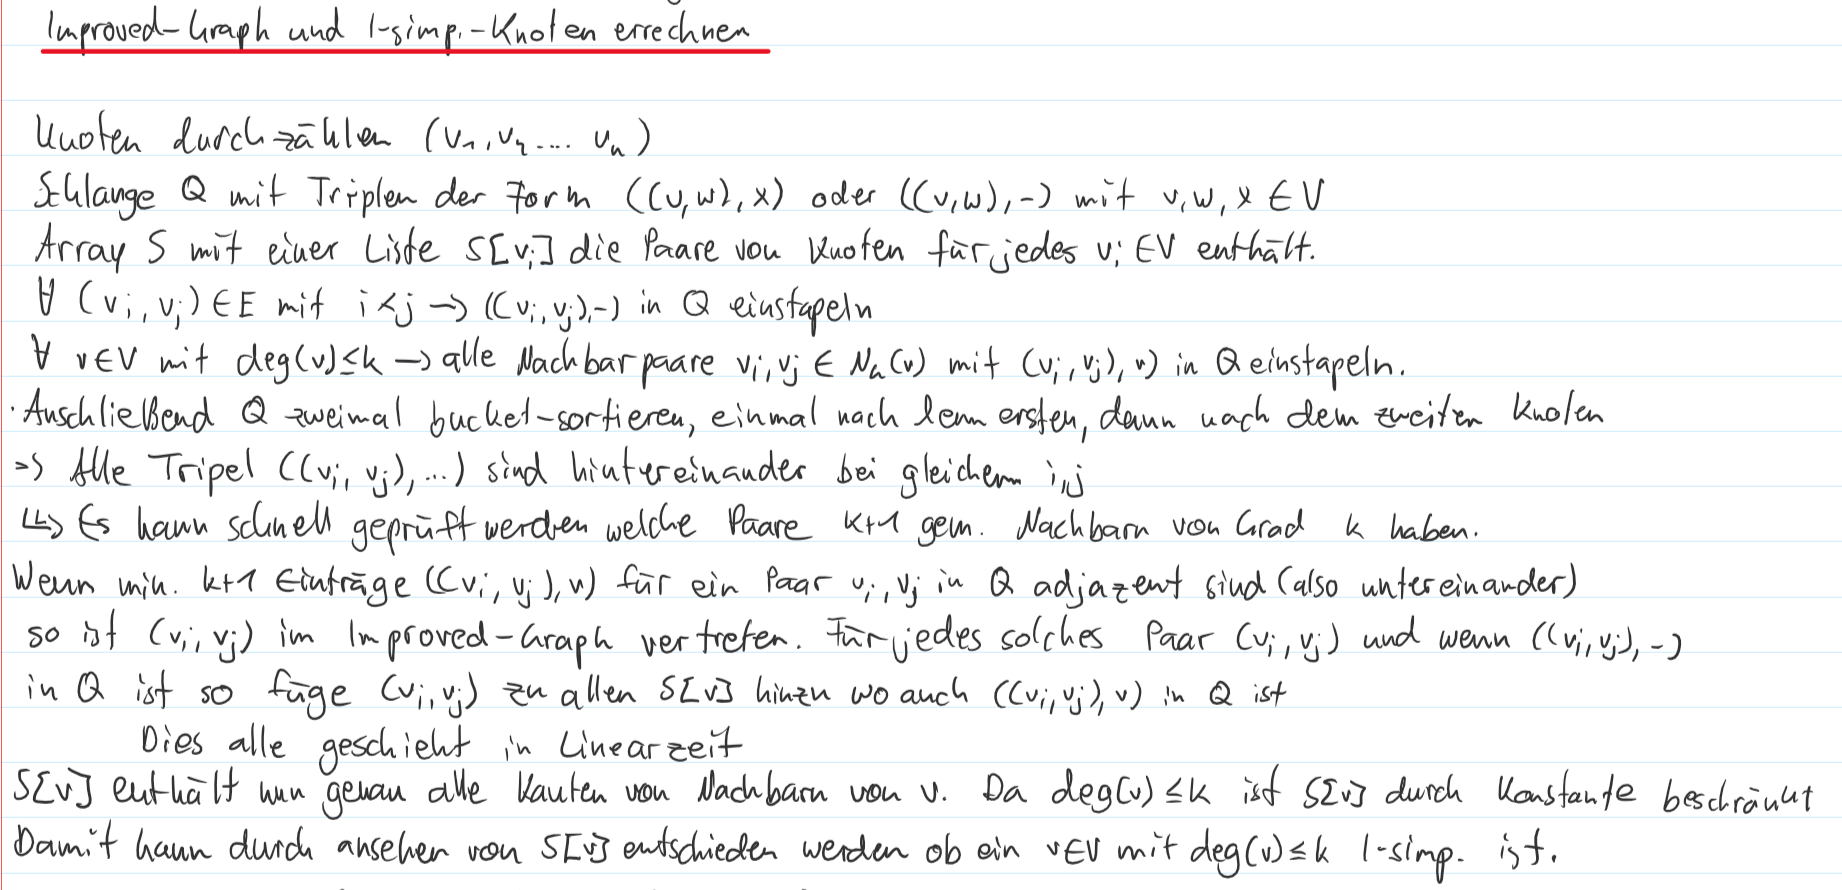 Improved-Graph und I-simp.-Knoten errechnen
Knoten durchzählen (v₁, v₂ .... vₙ)
Schlange Q mit Triplen der Form ((v,w),x) oder ((v,w),-) mit v,w,x ∈ V
Array S mit einer Liste S[vᵢ] die Paare von Knoten für jedes vᵢ ∈ V enthält.
∀ (vᵢ, vⱼ) ∈ E mit i < j → ((vᵢ, vⱼ),-) in Q einstapeln
∀ v∈V mit deg(v)≤k → alle Nachbarpaare vᵢ,vⱼ ∈ N_G(v) mit (vᵢ, vⱼ), v) in Q einstapeln.
· Anschließend Q zweimal bucket-sortieren, einmal nach dem ersten, dann nach dem zweiten Knoten
=> Alle Tripel ((vᵢ, vⱼ), ...) sind hintereinander bei gleichem i,j
↳> Es kann schnell geprüft werden welche Paare k+1 gem. Nachbarn von Grad k haben.
Wenn min. k+1 Einträge ((vᵢ, vⱼ), v) für ein Paar vᵢ, vⱼ in Q adjazent sind (also untereinander)
so ist (vᵢ, vⱼ) im Improved-Graph vertreten. Für jedes solches Paar (vᵢ, vⱼ) und wenn ((vᵢ,vⱼ), -)
in Q ist so füge (vᵢ, vⱼ) zu allen S[v] hinzu wo auch ((vᵢ,vⱼ), v) in Q ist
Dies alle geschieht in Linearzeit
S[v] enthält nun genau alle Kanten von Nachbarn von v. Da deg(v) ≤ k ist S[v] durch Konstante beschränkt
Damit kann durch ansehen von S[v] entschieden werden ob ein v∈V mit deg(v) ≤ k I-simp. ist.